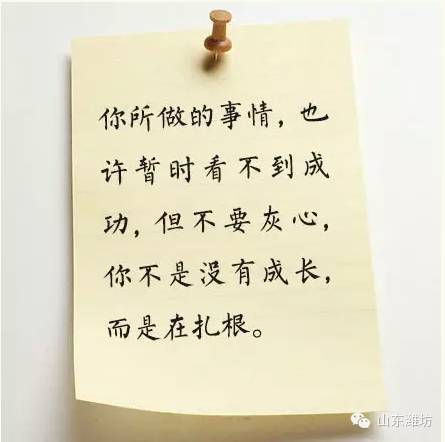 你所做的事情，也
许暂时看不到成
功，但不要灰心，
你不是没有成长，
而是在扎根。
山东潍坊